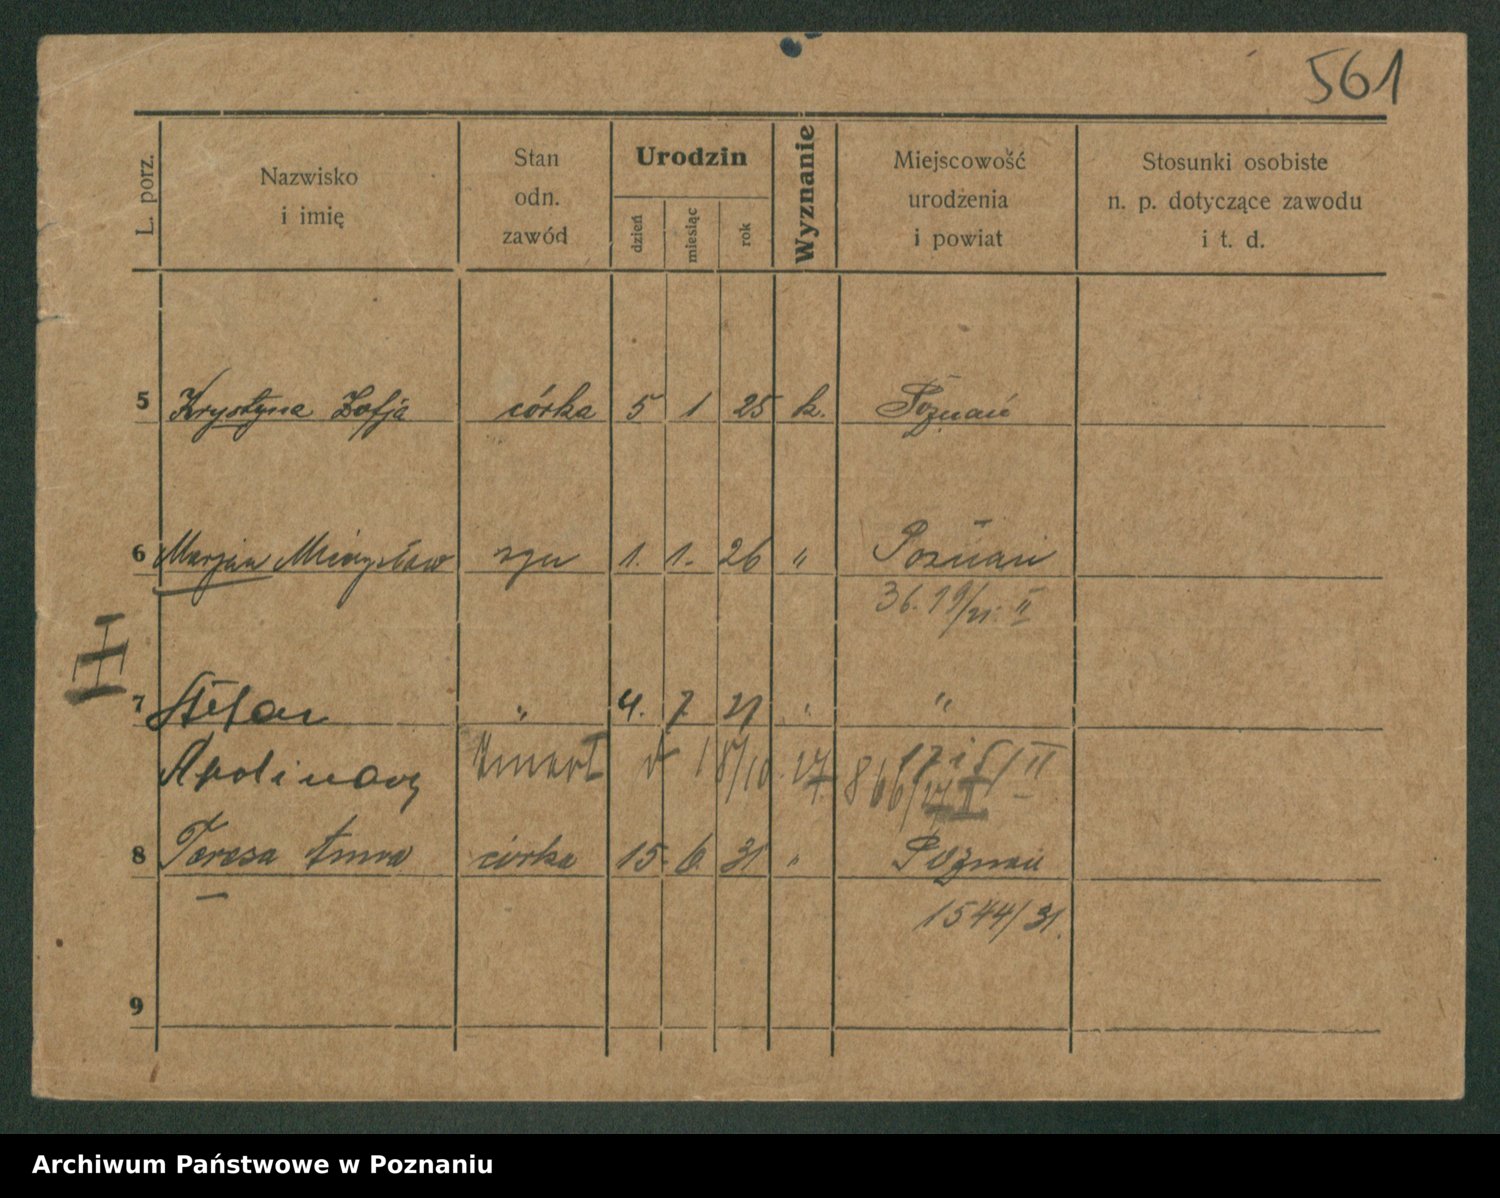 561
L. porz.
Nazwisko
i imię
Stan
odn.
zawód
Urodzin
dzień
miesiąc
rok
Wyznanie
Miejscowość
urodzenia
i powiat
Stosunki osobiste
n. p. dotyczące zawodu
i t. d.
5 Krystyna Zofja córka 5 1 25 k. Poznań
6 Marjan Mieczysław syn 1. 1. 26 " Poznań
II
7 Stefan " 4. 7. 27 " "
Apolinary
8 Teresa Anna córka 15. 6. 31 " Poznań
1544/31.
9
Archiwum Państwowe w Poznaniu